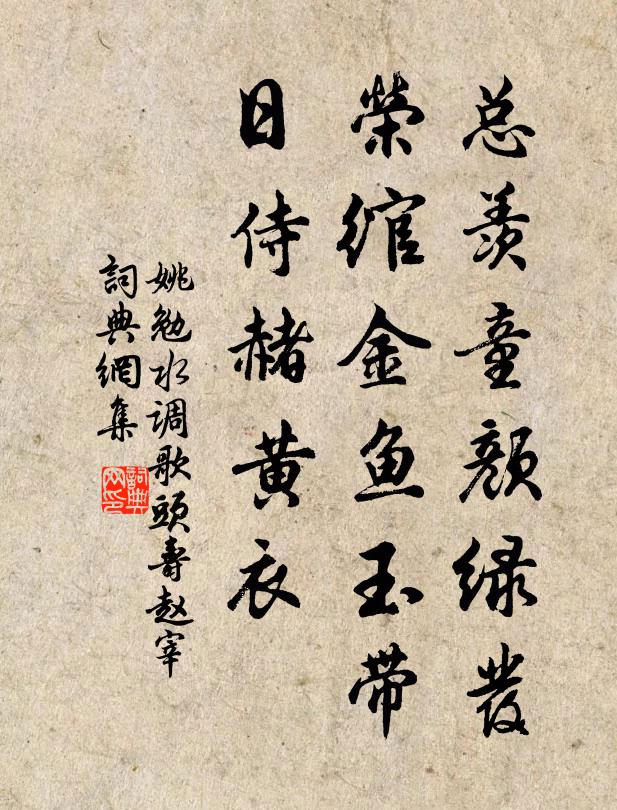 总羡童颜绿发
荣绾金鱼玉带
日侍赭黄衣
姚勉水调歌头寿赵宰
詞典網集
詞典网印